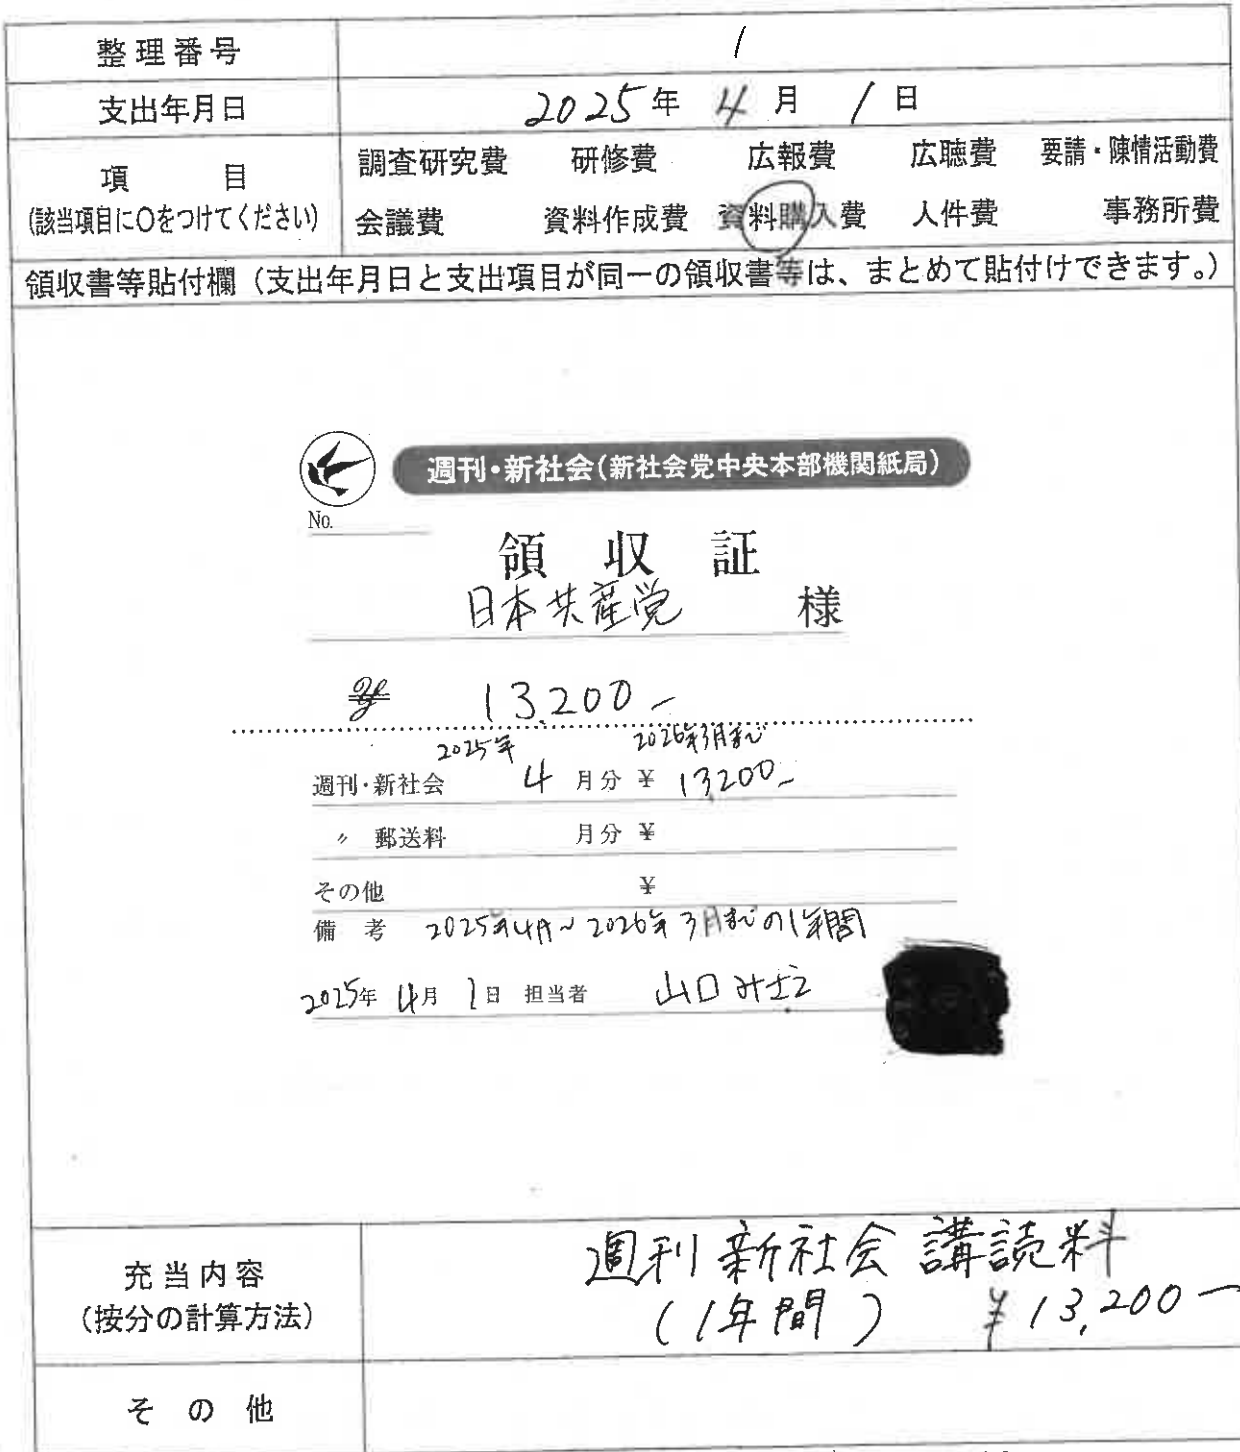 整理番号 1
支出年月日 2025年 4月 1日
項目 調査研究費 研修費 広報費 広聴費 要請・陳情活動費
(該当項目に○をつけてください) 会議費 資料作成費 資料購入費 人件費 事務所費
領収書等貼付欄(支出年月日と支出項目が同一の領収書等は、まとめて貼付けできます。)
週刊・新社会(新社会党中央本部機関紙局)
No.
領収証
日本共産党 様
¥ 13,200-
2025年 2026年3月まで
週刊・新社会 4月分 ¥ 13200-
〃 郵送料 月分 ¥
その他 ¥
備考 2025年4月~2026年3月までの1年間
2025年 4月 1日 担当者 山口
充当内容 週刊新社会 講読料
(按分の計算方法) (1年間) ¥13,200-
その他